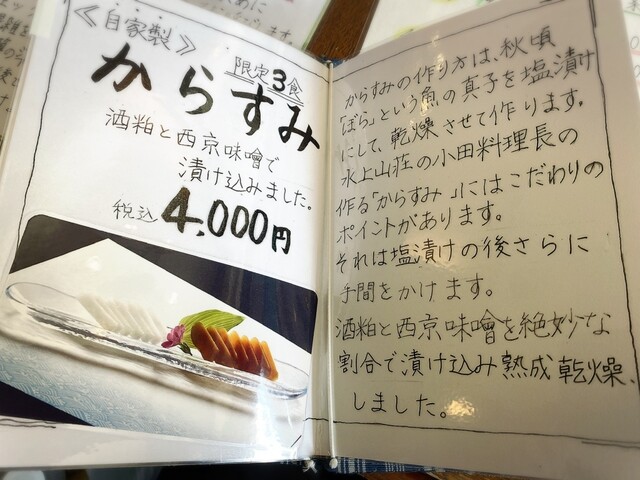 ≪自家製≫
限定3食
からすみ
酒粕と西京味噌で
漬け込みました。
税込 4,000円
からすみの作り方は、秋頃
「ぼら」という魚の真子を塩漬け
にして、乾燥させて作ります。
水上山荘の小田料理長の
作る「からすみ」にはこだわりの
ポイントがあります。
それは塩漬けの後さらに
手間をかけます。
酒粕と西京味噌を絶妙な
割合で漬け込み熟成乾燥、
しました。